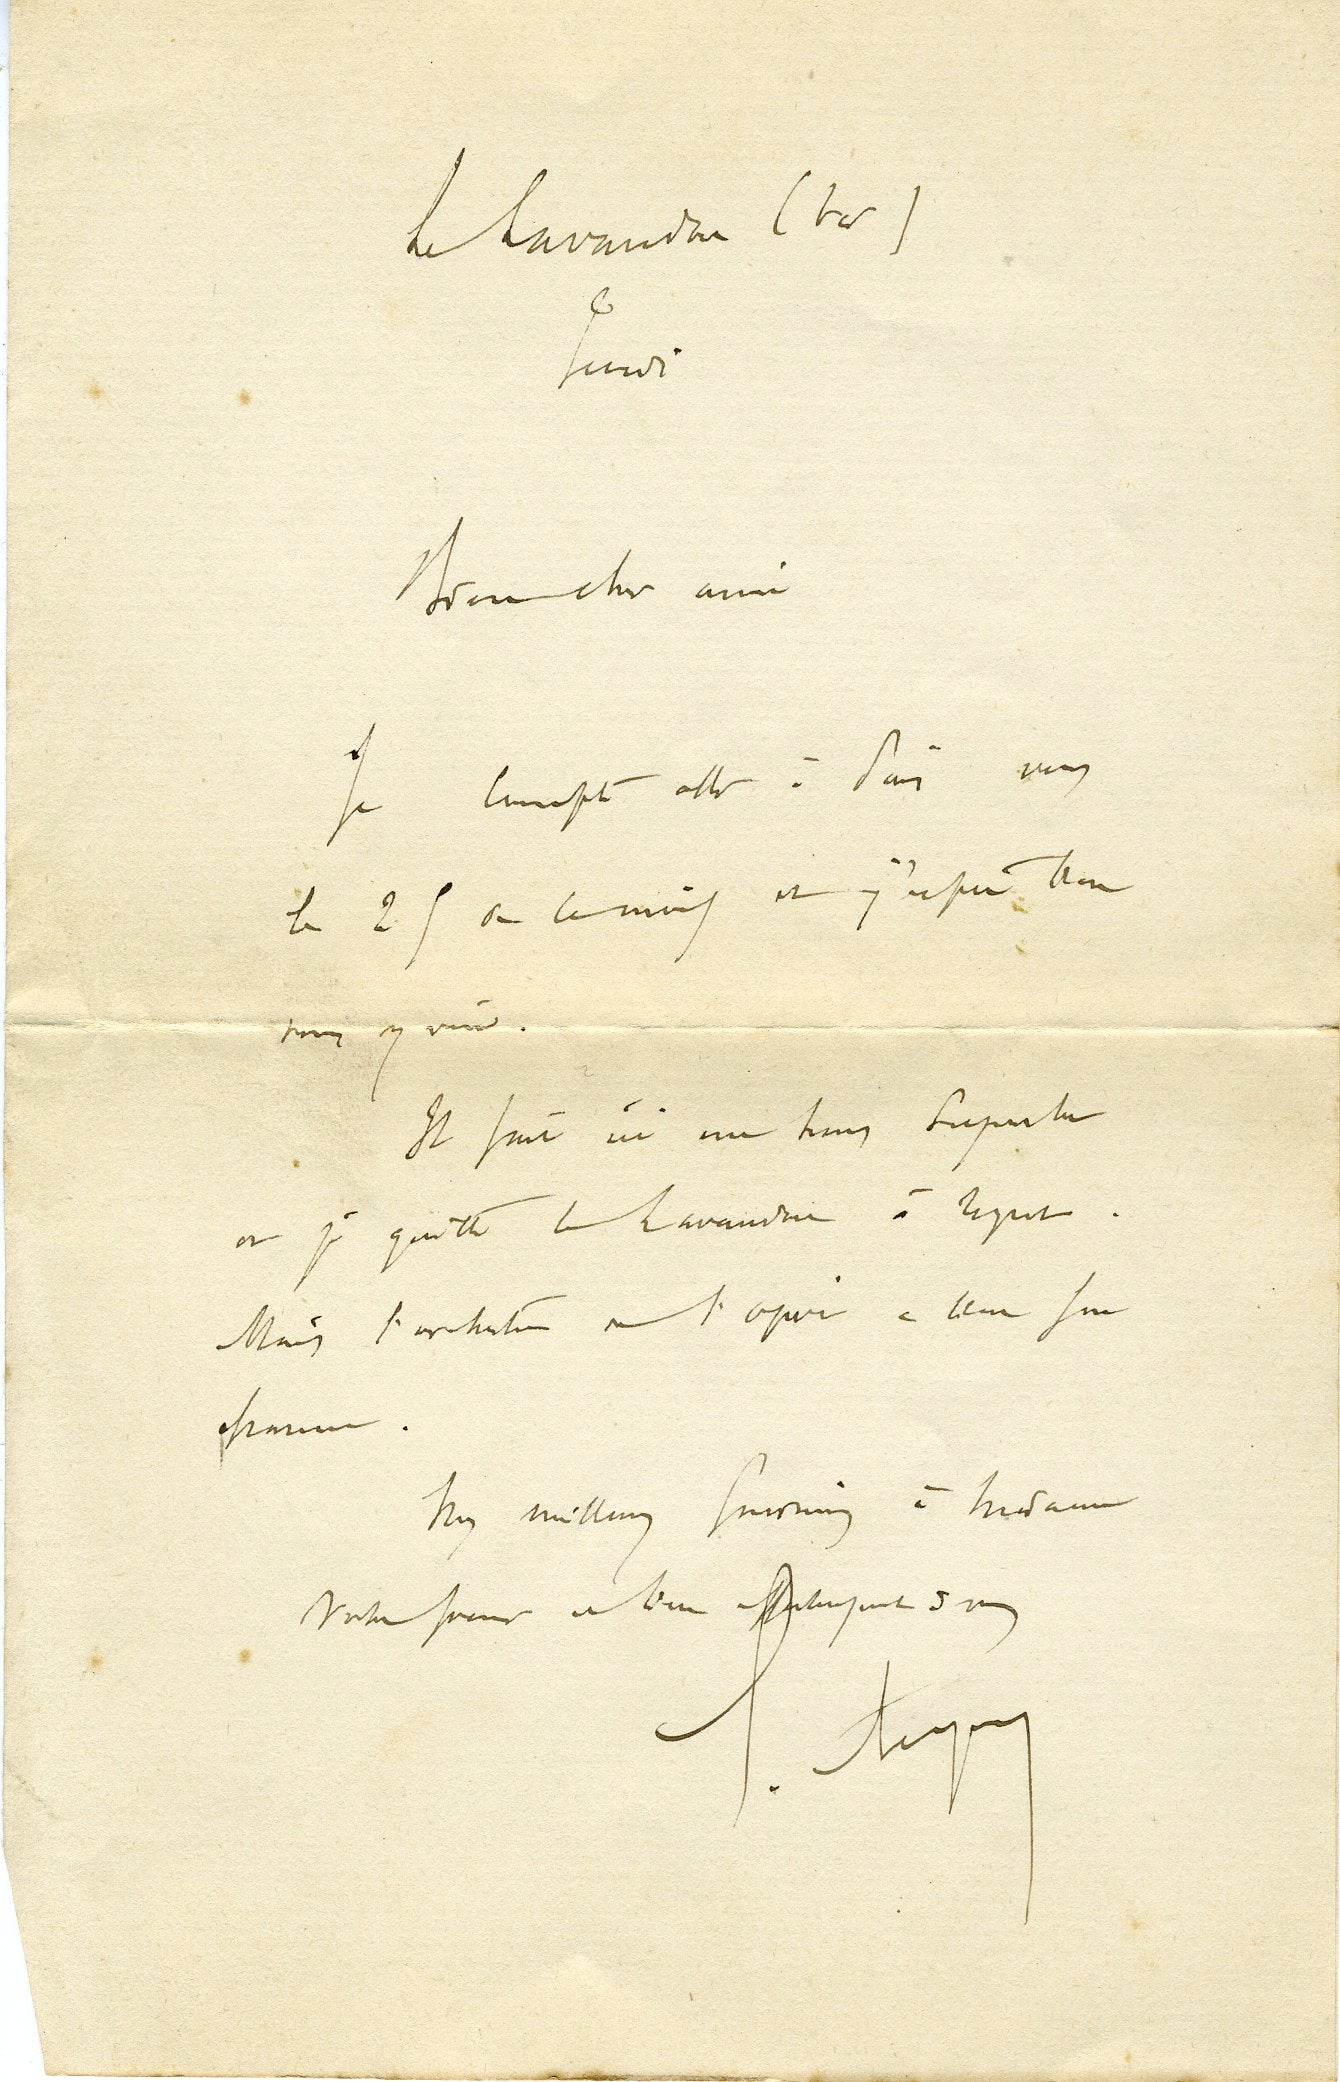 Le Lavandou (Var)
Jeudi
Bien cher ami
Je compte aller à Paris vers
le 25 de ce mois et j'espère bien
vous y voir.
Il fait ici un temps superbe
et je quitte le Lavandou à regret.
Mais l'orchestre de l'opéra a bien son
charme.
Mes meilleurs souvenirs à Madame
votre soeur et bien affectueusement à vous